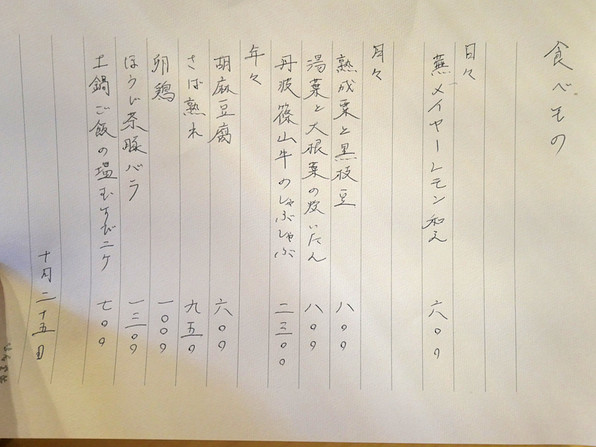 食べもの
日々
蕪メイヤーレモン和え 六〇〇
月々
熟成栗と黒枝豆 八〇〇
湯葉と大根菜の炊いたん 八〇〇
丹波篠山牛のしゃぶしゃぶ 二三〇〇
年々
胡麻豆腐 六〇〇
さば熟れ 九五〇
卵鶏 一〇〇〇
ほうじ茶豚バラ 一三〇〇
土鍋ご飯の塩むすび二ケ 七〇〇
十月二十五日